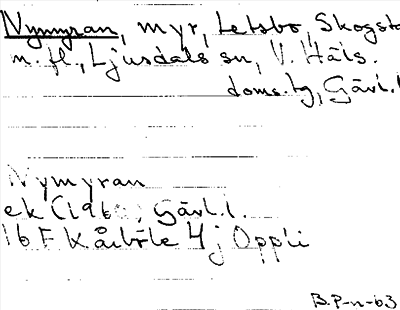 Nymyran, myr, Letsbo, Skogsta
m. fl., Ljusdals sn, V. Häls.
doms.hg, Gävl.l
Nymyran
ek (196 , Gävl.l.
16 F Kårböle 4 j Oppli
B.P-n-63